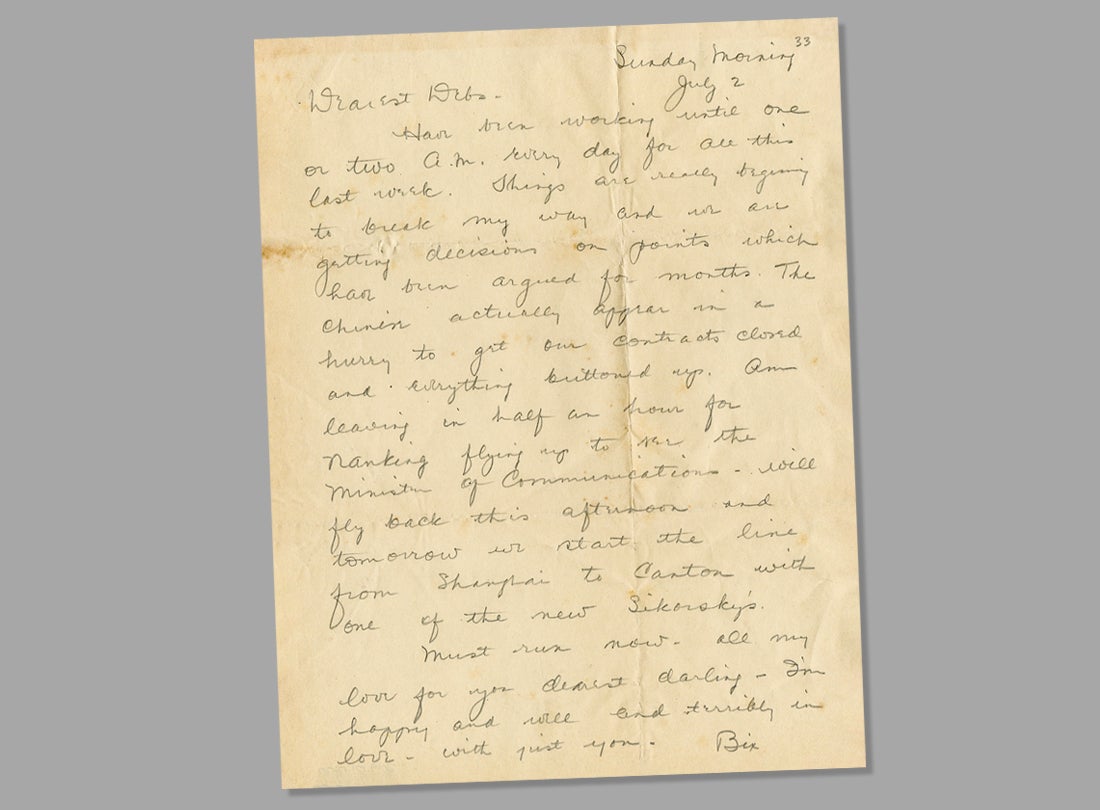 33
Sunday Morning
July 2
Dearest Debs -
Have been working until one
or two A.M. every day for all this
last week. Things are really begining
to break my way and we are
getting decisions on points which
have been argued for months. The
Chinese actually appear in a
hurry to get our contracts closed
and everything buttoned up. Am
leaving in half an hour for
Nanking flying up to see the
Minister of Communications - will
fly back this afternoon and
tomorrow we start the line
from Shanghai to Canton with
one of the new Sikorsky's.
Must run now - all my
love for you dearest darling - I'm
happy and well and terribly in
love - with just you - Bix